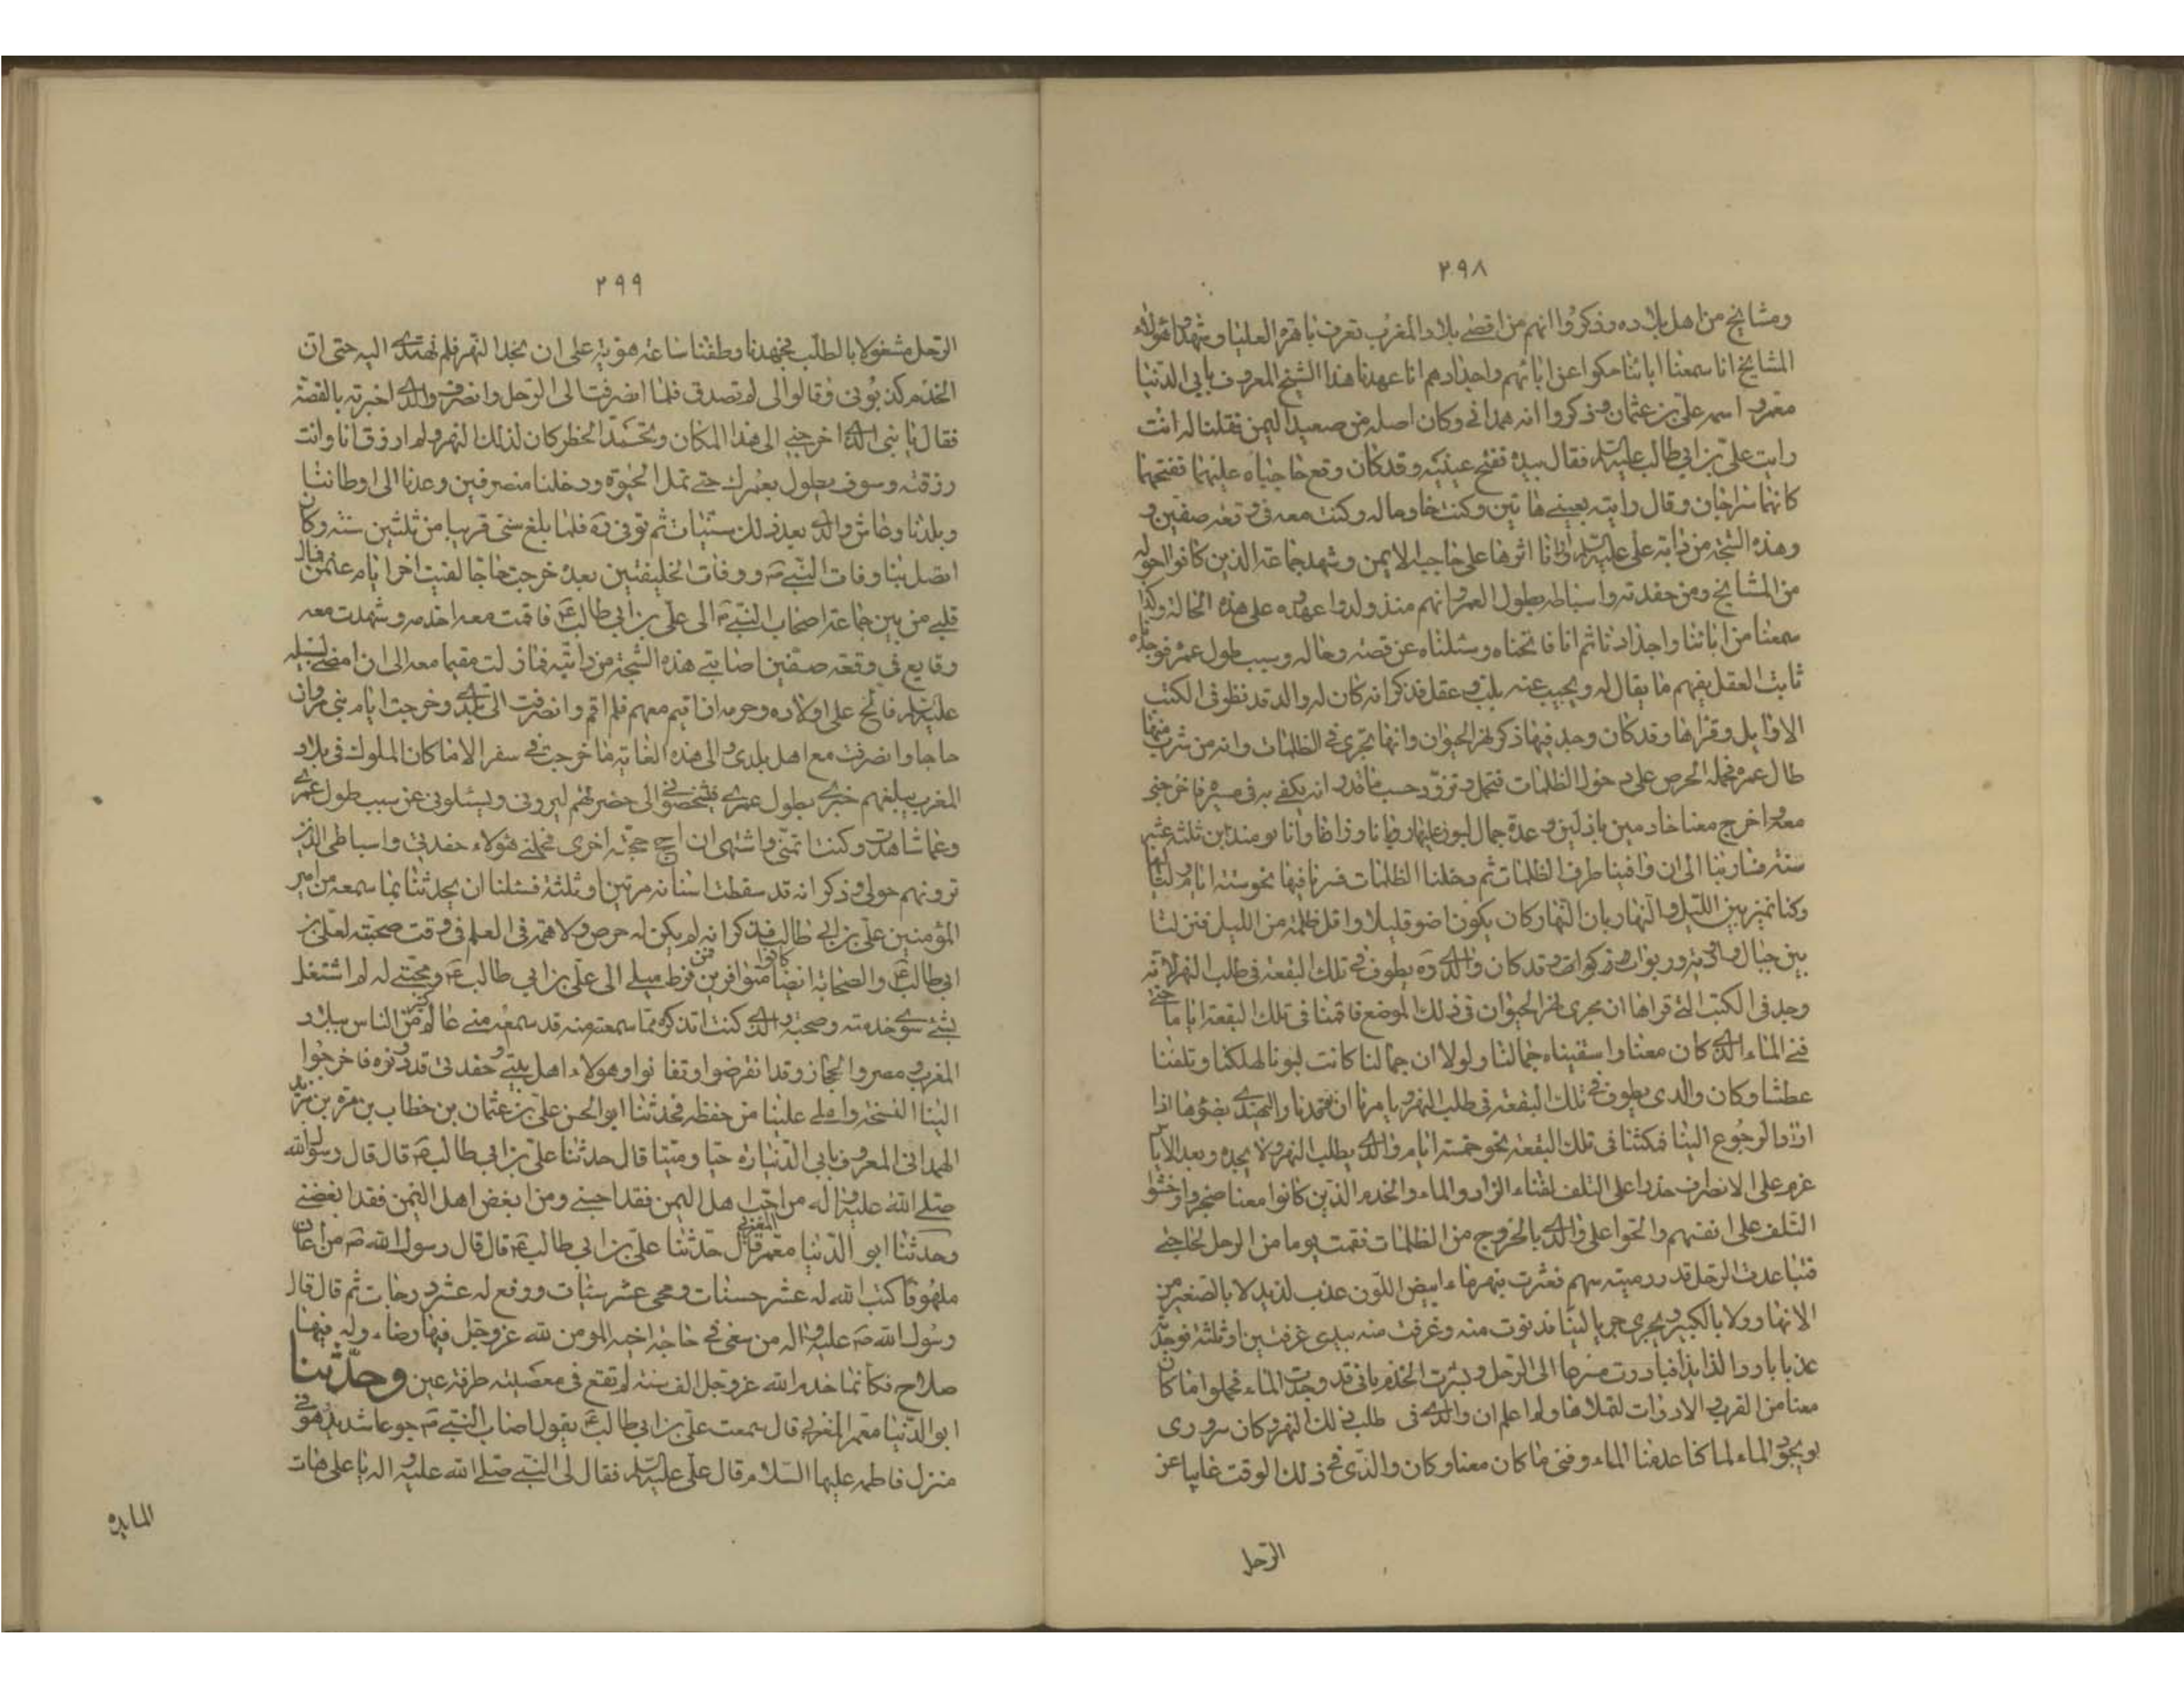 ٢٩٨
ومشايخ من اهل بلاده وذكروا انهم من اقصى بلاد المغرب تعرف باهرة العليا وشهدوا هؤلاء
المشايخ انا سمعنا ابائنا حكوا عن ابائهم واجدادهم انا عهدنا هذا الشيخ المعروف بابي الدنيا
معمر واسمه علي بن عثمان وذكروا انه همداني وكان اصله من صعيد اليمن فقلنا له انت
رايت علي بن ابي طالب عليه السلم فقال بيده ففتح عينيه وقد كان وقع حاجباه عليهما ففتحهما
كانهما سراجان وقال رايته بعيني هاتين وكنت خادما له وكنت معه في وقعة صفين و
وهذه الشجة من دابة علي عليه السلم وارانا اثرها على حاجبه الايمن وشهد جماعة الذين كانوا حوله
من المشايخ ومن حفدته واسباطه بطول العمر وانهم منذ ولدوا عهدوه على هذه الحالة وكذا
سمعنا من ابائنا واجدادنا ثم انا فاتحناه وسئلناه عن قصته وحاله وسبب طول عمره فوجدناه
ثابت العقل يفهم ما يقال له ويجيب عنه بلب وعقل فذكر انه كان له والد قد نظر في الكتب
الاوايل وقراها وقد كان وجد فيها ذكر نهر الحيوان وانها تجري في الظلمات وانه من شرب منها
طال عمره فحمله الحرص على دخول الظلمات فتحمل وتزود حسب ما قدر انه يكفي به في مسيره فاخرجني
معه واخرج معنا خادمين باذلين وعدة جمال لبون عليها روايا وزادا وانا يومئذ ابن ثلثة عشر
سنة فسار بنا الى ان وافينا طرف الظلمات ثم دخلنا الظلمات فسرنا فيها نحو ستة ايام ولياليها
وكنا نميز بين الليل والنهار بان النهار كان يكون اضوء قليلا واقل ظلمة من الليل فنزلنا
بين جبال واودية وربوات وذكوات وقد كان والدي ره يطوف في تلك البقعة في طلب النهر لانه
وجد في الكتب التي قراها ان مجرى نهر الحيوان في ذلك الموضع فاقمنا في تلك البقعة اياما حتى
فنى الماء الذي كان معنا واسقيناه جمالنا ولولا ان جمالنا كانت لبونا لهلكنا وتلفنا
عطشا وكان والدي يطوف في تلك البقعة في طلب النهر ويامرنا ان نوقد نارا ليهتدي بضوءها اذا
اراد الرجوع الينا فمكثنا في تلك البقعة نحو خمسة ايام ووالدي يطلب النهر ولا يجده وبعد الاياس
عزم على الانصراف حذرا على التلف لفناء الزاد والماء والخدم الذين كانوا معنا ضجروا وخشوا
التلف على انفسهم والحوا على والدي بالخروج من الظلمات فقمت يوما من الرحل لحاجتي
فتباعدت الرحل قدر رمية سهم فعثرت بنهر ماء ابيض اللون عذب لذيذ لا بالصغير من
الانهار ولا بالكبير ويجري جريا لينا فدنوت منه وغرفت منه بيدي غرفتين او ثلثة فوجدته
عذبا باردا لذيذا فبادرت مسرعا الى الرحل وبشرت الخدم باني قد وجدت الماء فحملوا ما كان
معنا من القرب والادوات لنملاها ولم اعلم ان والدي في طلب ذلك النهر وكان سروري
بوجود الماء لما كنا عدمنا الماء وفنى ما كان معنا وكان والدي في ذلك الوقت غايبا عن
الرحل
٢٩٩
الرحل مشغولا بالطلب فجهدنا وطفنا ساعة هوية على ان نجد النهر فلم نهتدي اليه حتى ان
الخدم كذبوني وقالوا لي لم تصدق فلما انصرفت الى الرحل وانصرف والدي اخبرته بالقصة
فقال يا بني الذي اخرجني الى هذا المكان وتحمد الخطر كان لذلك النهر ولم ارزق انا وانت
رزقته وسوف يطول بعمرك حتى تمل الحيوة ودخلنا منصرفين وعدنا الى اوطاننا
وبلدنا وعاش والدي بعد ذلك سنيات ثم توفي ره فلما بلغ سني قريبا من ثلثين سنة وكان
اتصل بنا وفات النبي ص ووفات الخليفتين بعده خرجت حاجا لفيت اخر ايام عثمن فمال
قلبي من بين جماعة اصحاب النبي ص الى علي بن ابي طالب ع فاقمت معه اخدمه وشهدت معه
وقايع في وقعة صفين اصابتي هذه الشجة من دابته فما زلت مقيما معه الى ان مضى لسبيله
عليه السلم فالح علي اولاده وحرمه ان اقيم معهم فلم اقم وانصرفت الى بلدي وخرجت ايام بني مروان
حاجا وانصرفت مع اهل بلدي والى هذه الغاية ما خرجت في سفر الا ما كان الملوك في بلاد
المغرب يبلغهم خبري بطول عمري فيشخصوني الى حضرتهم ليروني ويسئلوني عن سبب طول عمري
وعما شاهدت وكنت اتمنى واشتهي ان احج حجة اخرى فحملني هؤلاء حفدتي واسباطي الذين
ترونهم حولي وذكر انه قد سقطت اسنانه مرتين او ثلثة فسئلنا ان يحدثنا بما سمعه من امير
المؤمنين علي بن ابي طالب فذكر انه لم يكن له حرص ولا همة في العلم في وقت صحبته لعلي بن
ابي طالب ع والصحابة ايضا كانوا متوافرين فمن فرط ميلي الى علي بن ابي طالب ع ومحبتي له لم اشتغل
بشئ سوى خدمته وصحبته والذي كنت اتذكره مما سمعته منه قد سمعه مني عالم كثير من الناس ببلاد
المغرب ومصر والحجاز وقد انقرضوا وتفانوا وهولاء اهل بيتي وحفدتي قد دونوه فاخرجوا
الينا النسخة واملى علينا من حفظه فحدثنا ابو الحسن علي بن عثمان بن خطاب بن مرة بن مزيد
الهمداني المعروف بابي الدنيا ره حيا وميتا قال حدثنا علي بن ابي طالب ع قال قال رسول الله
صلى الله عليه واله من احب اهل اليمن فقد احبني ومن ابغض اهل اليمن فقد ابغضني
وحدثنا ابو الدنيا معمر المغربي قال حدثنا علي بن ابي طالب ع قال قال رسول الله ص من اعان
ملهوفا كتب الله له عشر حسنات ومحى عشر سيئات ورفع له عشر درجات ثم قال قال
رسول الله ص عليه واله من سعى في حاجة اخيه المومن لله عز وجل فيها رضاء وله فيها
صلاح فكانما خدم الله عز وجل الف سنة لم تقع في معصيته طرفة عين وحدثنا
ابو الدنيا معمر المغربي قال سمعت علي بن ابي طالب ع يقول اصاب النبي ص جوعا شديد وهو في
منزل فاطمه عليها السلام قال علي عليه السلم فقال لي النبي صلى الله عليه واله يا علي هات
المايده